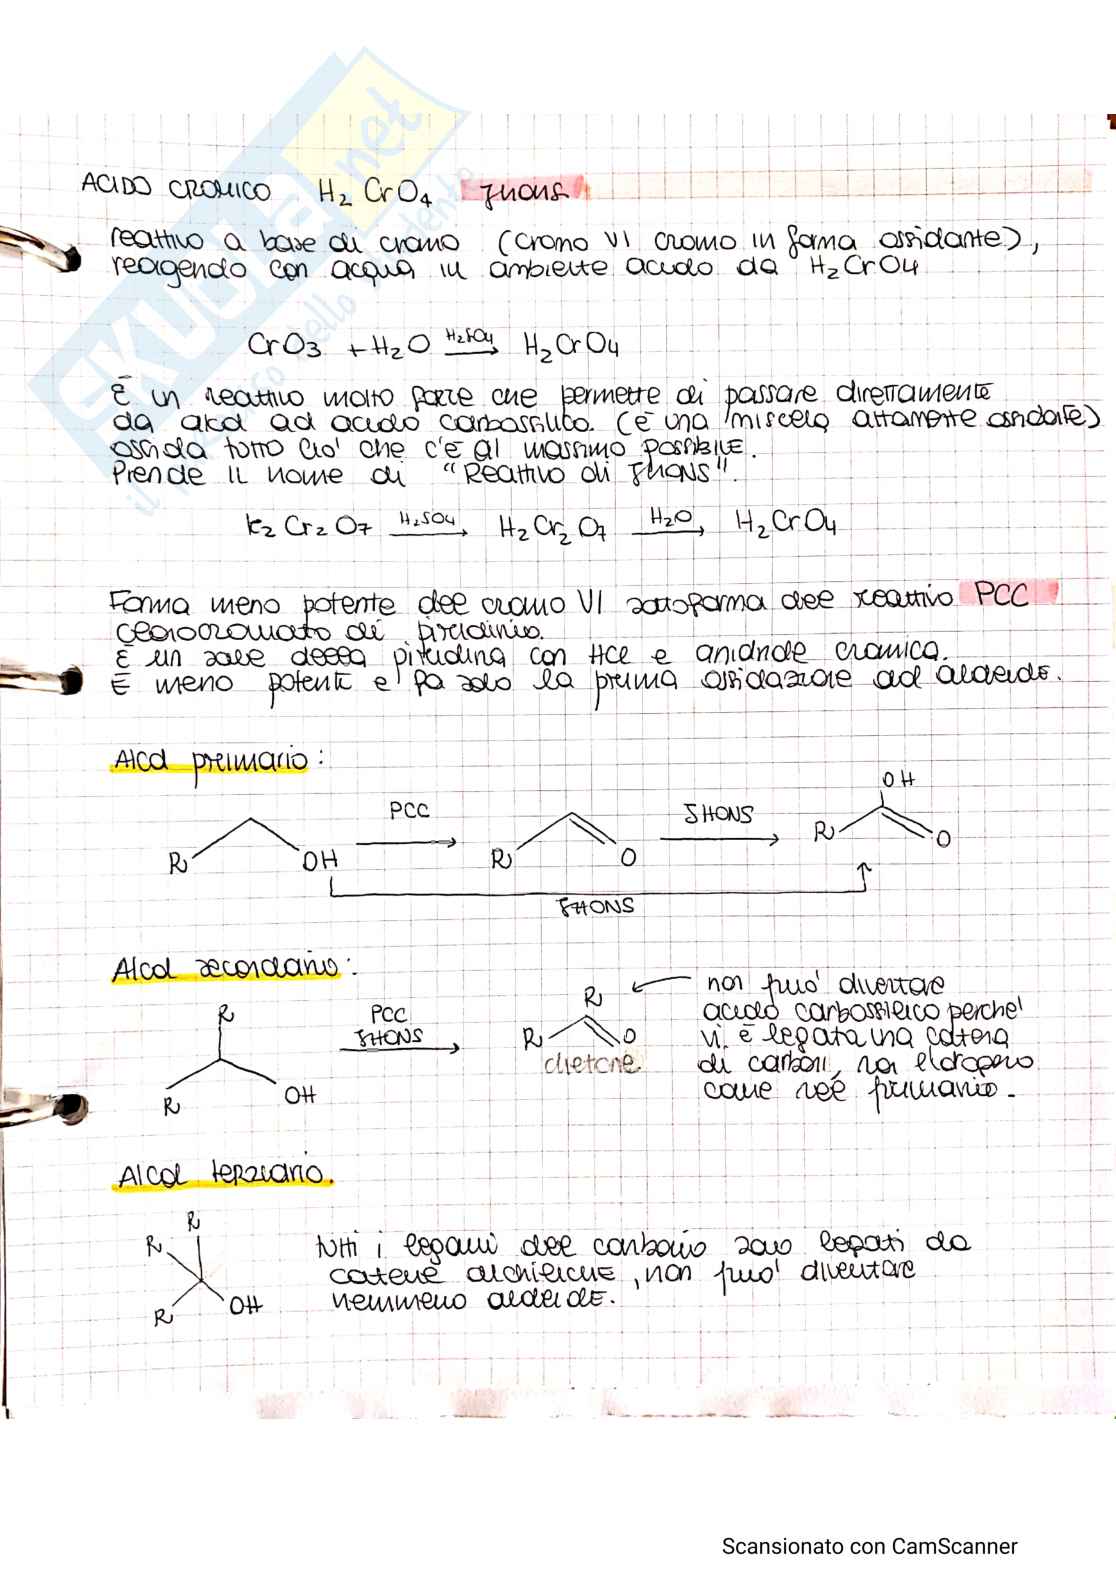 ACIDO CROMICO H₂CrO₄ JHONS
reattivo a base di cromo (cromo VI cromo in forma ossidante),
reagendo con acqua in ambiente acido da H₂CrO₄
CrO₃ + H₂O H₂SO₄ → H₂CrO₄
È un reattivo molto forte che permette di passare direttamente
da alcol ad acido carbossilico. (è una miscela altamente ossidante)
ossida tutto ciò che c'è al massimo possibile.
Prende il nome di "Reattivo di JHONS".
K₂Cr₂O₇ H₂SO₄ → H₂Cr₂O₇ H₂O → H₂CrO₄
Forma meno potente del cromo VI sottoforma del reattivo PCC
clorocromato di piridinio.
È un sale della piridina con HCl e anidride cromica.
È meno potente e fa solo la prima ossidazione ad aldeide.
Alcol primario:
R OH PCC → R O JHONS → R OH O
JHONS
Alcol secondario:
R R OH PCC JHONS → R R O
chetone
non può diventare
acido carbossilico perché
vi è legata una catena
di carboni, non
come nel primario.
Alcol terziario.
R R R OH
tutti i legami del carbonio sono legati da
catene alchiliche, non può diventare
nemmeno aldeide.
SKUOLA.net
il
Scansionato con CamScanner